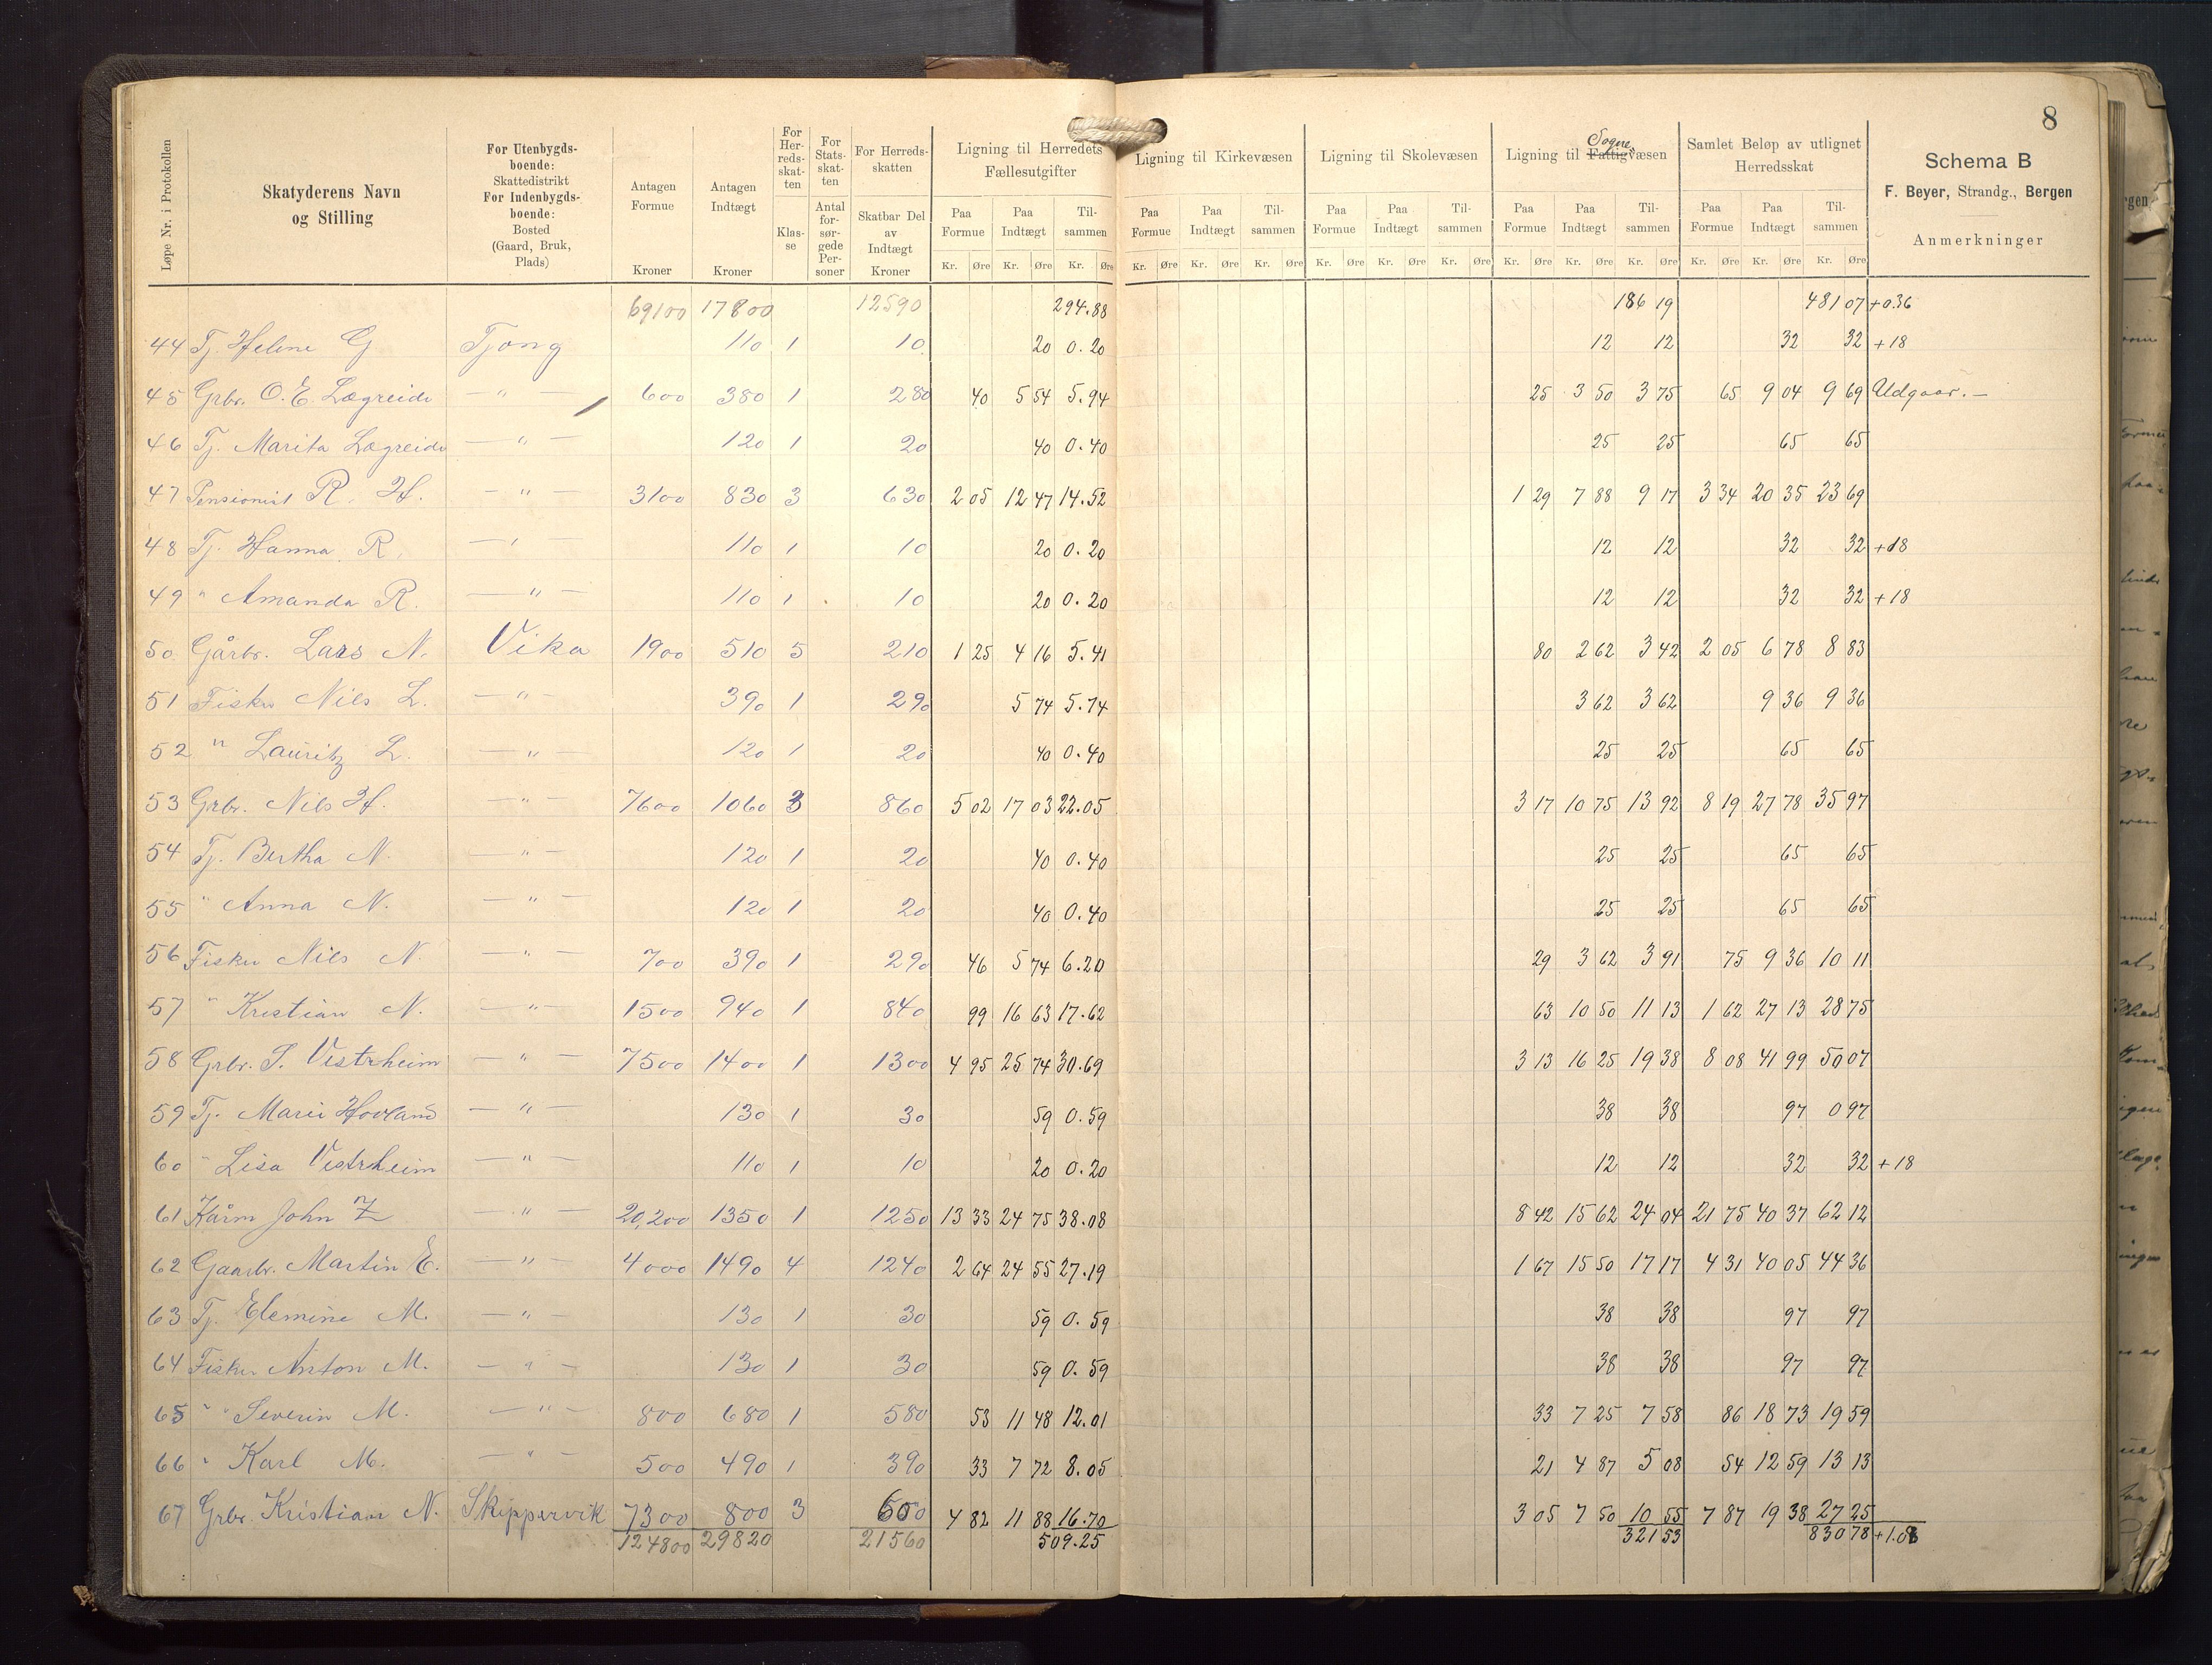 8
Løpe Nr. i Protokollen
Skatyderens Navn og Stilling
For Utenbygdsboende: Skattedistrikt For Indenbygdsboende: Bosted (Gaard, Bruk, Plads)
Antagen Formue Kroner
Antagen Indtægt Kroner
For Herredsskatten Klasse
For Statsskatten Antal forsørgede Personer
For Herredsskatten Skatbar Del av Indtægt Kroner
Ligning til Herredets Fællesutgifter
Paa Formue Paa Indtægt Tilsammen
Kr. Øre Kr. Øre Kr. Øre
Ligning til Kirkevæsen
Paa Formue Paa Indtægt Tilsammen
Kr. Øre Kr. Øre Kr. Øre
Ligning til Skolevæsen
Paa Formue Paa Indtægt Tilsammen
Kr. Øre Kr. Øre Kr. Øre
Sogne
Ligning til Fattigvæsen
Paa Formue Paa Indtægt Tilsammen
Kr. Øre Kr. Øre Kr. Øre
Samlet Beløp av utlignet Herredsskat
Paa Formue Paa Indtægt Tilsammen
Kr. Øre Kr. Øre Kr. Øre
Schema B
F. Beyer, Strandg., Bergen
Anmerkninger
69100 17800 12590 294.88 186 19 481 07 +0.36
44 Tj. Helene G Tjong 110 1 10 20 0.20 12 12 32 32 +18
45 Grbr. O. E. Lægreid —"— 600 380 1 280 40 5 54 5.94 25 3 50 3 75 65 9 04 9 69 Udgaar. —
46 Tj. Marita Lægreid —"— 120 1 20 40 0.40 25 25 65 65
47 Pensionist R. H. —"— 3100 830 3 630 2 05 12 47 14.52 1 29 7 88 9 17 3 34 20 35 23 69
48 Tj. Hanna R. —"— 110 1 10 20 0.20 12 12 32 32 +18
49 " Amanda R. —"— 110 1 10 20 0.20 12 12 32 32 +18
50 Gårbr. Lars N. Vika 1900 510 5 210 1 25 4 16 5.41 80 2 62 3 42 2 05 6 78 8 83
51 Fisker Nils L. —"— 390 1 290 5 74 5.74 3 62 3 62 9 36 9 36
52 " Lauritz L. —"— 120 1 20 40 0.40 25 25 65 65
53 Grbr. Nils H. —"— 7600 1060 3 860 5 02 17 03 22.05 3 17 10 75 13 92 8 19 27 78 35 97
54 Tj. Bertha N. —"— 120 1 20 40 0.40 25 25 65 65
55 " Anna N. —"— 120 1 20 40 0.40 25 25 65 65
56 Fisker Nils N. —"— 700 390 1 290 46 5 74 6.20 29 3 62 3 91 75 9 36 10 11
57 " Kristian N. —"— 1500 940 1 840 99 16 63 17.62 63 10 50 11 13 1 62 27 13 28 75
58 Grbr. S. Vestrheim —"— 7500 1400 1 1300 4 95 25 74 30.69 3 13 16 25 19 38 8 08 41 99 50 07
59 Tj. Marie Hovland —"— 130 1 30 59 0.59 38 38 97 0 97
60 " Lisa Vestrheim —"— 110 1 10 20 0.20 12 12 32 32 +18
61 Kårm John Z —"— 20,200 1350 1 1250 13 33 24 75 38.08 8 42 15 62 24 04 21 75 40 37 62 12
62 Gaarbr. Martin E. —"— 4000 1490 4 1240 2 64 24 55 27.19 1 67 15 50 17 17 4 31 40 05 44 36
63 Tj. Elemine M. —"— 130 1 30 59 0.59 38 38 97 97
64 Fisker Anton M. —"— 130 1 30 59 0.59 38 38 97 97
65 " Severin M. —"— 800 680 1 580 53 11 48 12.01 33 7 25 7 58 86 18 73 19 59
66 " Karl M. —"— 500 490 1 390 33 7 72 8.05 21 4 87 5 08 54 12 59 13 13
67 Grbr. Kristian N. Skippervik 7300 800 3 600 4 82 11 88 16.70 3 05 7 50 10 55 7 87 19 38 27 25
124800 29820 21560 509.25 321 53 830 78 +1.08